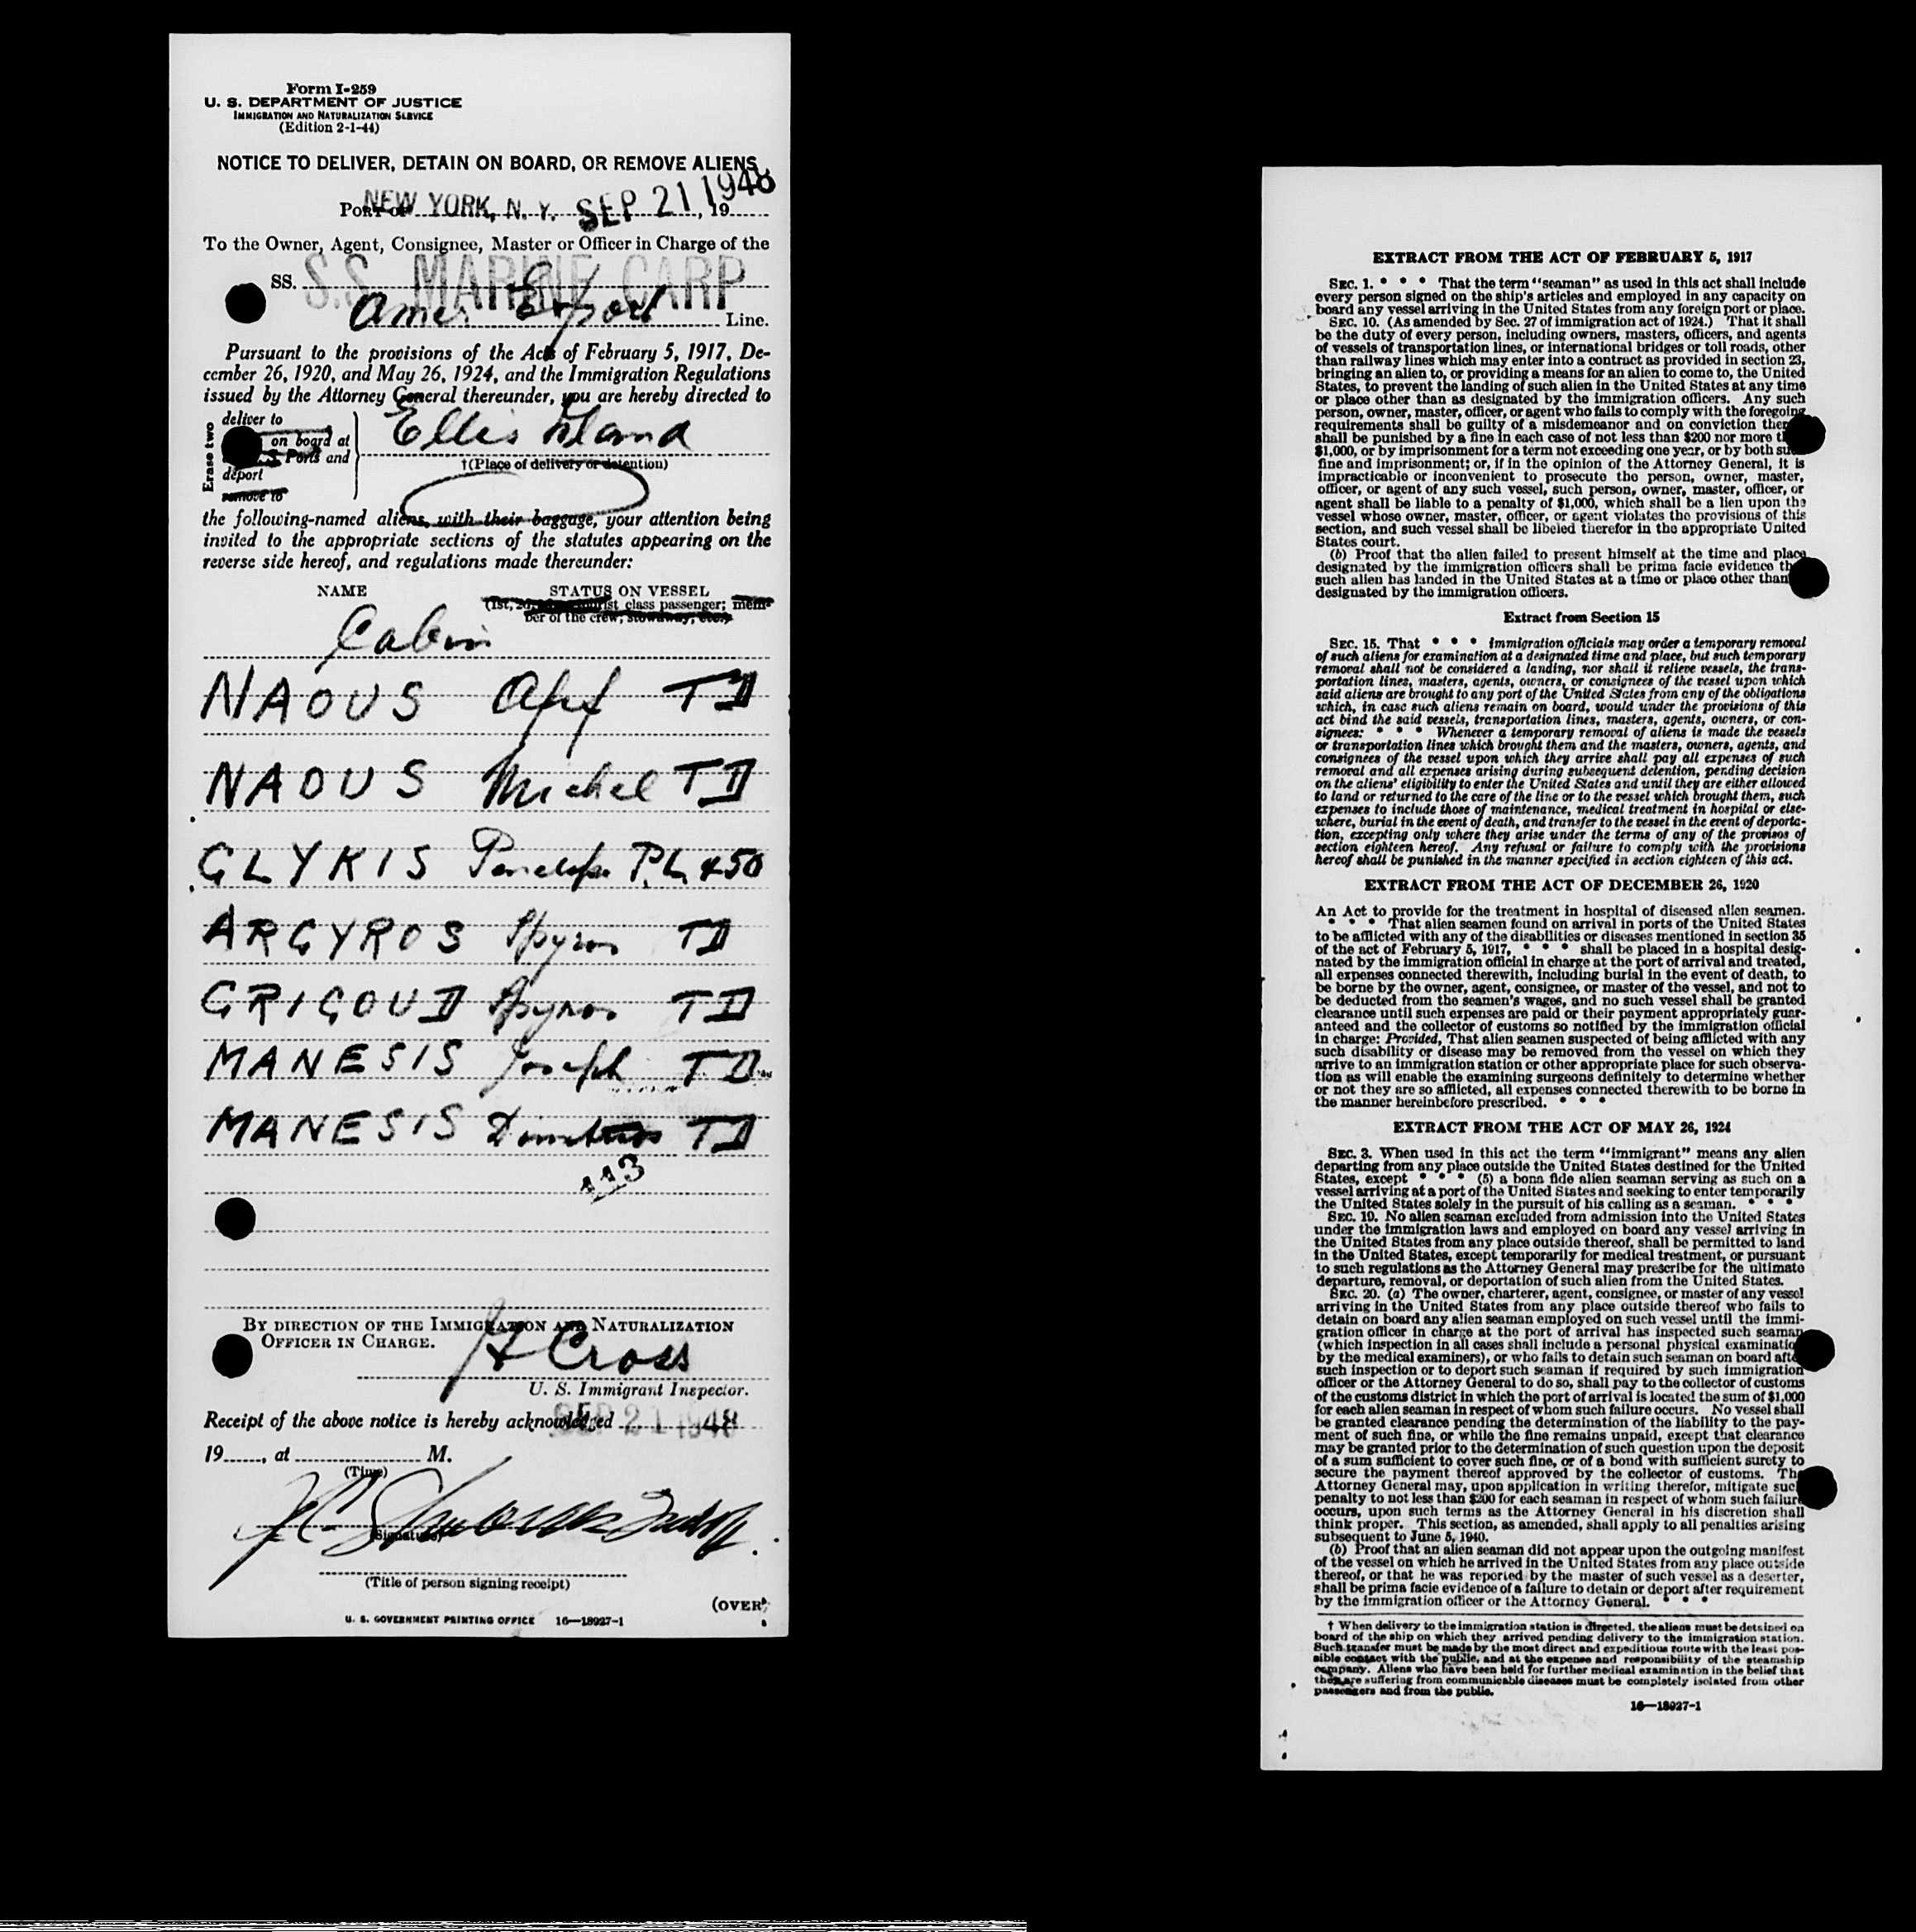 Form I-259
U. S. DEPARTMENT OF JUSTICE
IMMIGRATION AND NATURALIZATION SERVICE
(Edition 2-1-44)
NOTICE TO DELIVER, DETAIN ON BOARD, OR REMOVE ALIENS
Port of NEW YORK, N. Y. SEP 21 1948, 19
To the Owner, Agent, Consignee, Master or Officer in Charge of the
SS. S.S. MARINE CARP
Amer Export Line.
Pursuant to the provisions of the Acts of February 5, 1917, De-
cember 26, 1920, and May 26, 1924, and the Immigration Regulations
issued by the Attorney General thereunder, you are hereby directed to
Erase two
deliver to
on board at
Ports and
deport
remove to
Ellis Island
†(Place of delivery or detention)
the following-named aliens, with their baggage, your attention being
invited to the appropriate sections of the statutes appearing on the
reverse side hereof, and regulations made thereunder:
NAME STATUS ON VESSEL
(1st, 2d, tourist class passenger; mem-
ber of the crew, stowaway, etc.)
Cabin
NAOUS Afif TD
NAOUS Michel TD
GLYKIS Penelope P.L. 450
ARGYROS Spyros TD
GRIGOUD Spyros TD
MANESIS Joseph TD
MANESIS Dimitrios TD
113
BY DIRECTION OF THE IMMIGRATION AND NATURALIZATION
OFFICER IN CHARGE.
H Cross
U. S. Immigrant Inspector.
Receipt of the above notice is hereby acknowledged SEP 21 1948
19, at M.
(Time)
(Signature)
(Title of person signing receipt)
(OVER)
U. S. GOVERNMENT PRINTING OFFICE 16—18927-1
EXTRACT FROM THE ACT OF FEBRUARY 5, 1917
SEC. 1. * * * That the term "seaman" as used in this act shall include
every person signed on the ship's articles and employed in any capacity on
board any vessel arriving in the United States from any foreign port or place.
SEC. 10. (As amended by Sec. 27 of immigration act of 1924.) That it shall
be the duty of every person, including owners, masters, officers, and agents
of vessels of transportation lines, or international bridges or toll roads, other
than railway lines which may enter into a contract as provided in section 23,
bringing an alien to, or providing a means for an alien to come to, the United
States, to prevent the landing of such alien in the United States at any time
or place other than as designated by the immigration officers. Any such
person, owner, master, officer, or agent who fails to comply with the foregoing
requirements shall be guilty of a misdemeanor and on conviction thereof
shall be punished by a fine in each case of not less than $200 nor more than
$1,000, or by imprisonment for a term not exceeding one year, or by both such
fine and imprisonment; or, if in the opinion of the Attorney General, it is
impracticable or inconvenient to prosecute the person, owner, master,
officer, or agent of any such vessel, such person, owner, master, officer, or
agent shall be liable to a penalty of $1,000, which shall be a lien upon the
vessel whose owner, master, officer, or agent violates the provisions of this
section, and such vessel shall be libeled therefor in the appropriate United
States court.
(b) Proof that the alien failed to present himself at the time and place
designated by the immigration officers shall be prima facie evidence that
such alien has landed in the United States at a time or place other than
designated by the immigration officers.
Extract from Section 15
SEC. 15. That * * * immigration officials may order a temporary removal
of such aliens for examination at a designated time and place, but such temporary
removal shall not be considered a landing, nor shall it relieve vessels, the trans-
portation lines, masters, agents, owners, or consignees of the vessel upon which
said aliens are brought to any port of the United States from any of the obligations
which, in case such aliens remain on board, would under the provisions of this
act bind the said vessels, transportation lines, masters, agents, owners, or con-
signees: * * * Whenever a temporary removal of aliens is made the vessels
or transportation lines which brought them and the masters, owners, agents, and
consignees of the vessel upon which they arrive shall pay all expenses of such
removal and all expenses arising during subsequent detention, pending decision
on the aliens' eligibility to enter the United States and until they are either allowed
to land or returned to the care of the line or to the vessel which brought them, such
expenses to include those of maintenance, medical treatment in hospital or else-
where, burial in the event of death, and transfer to the vessel in the event of deporta-
tion, excepting only where they arise under the terms of any of the provisos of
section eighteen hereof. Any refusal or failure to comply with the provisions
hereof shall be punished in the manner specified in section eighteen of this act.
EXTRACT FROM THE ACT OF DECEMBER 26, 1920
An Act to provide for the treatment in hospital of diseased alien seamen.
* * * That alien seamen found on arrival in ports of the United States
to be afflicted with any of the disabilities or diseases mentioned in section 35
of the act of February 5, 1917, * * * shall be placed in a hospital desig-
nated by the immigration official in charge at the port of arrival and treated,
all expenses connected therewith, including burial in the event of death, to
be borne by the owner, agent, consignee, or master of the vessel, and not to
be deducted from the seamen's wages, and no such vessel shall be granted
clearance until such expenses are paid or their payment appropriately guar-
anteed and the collector of customs so notified by the immigration official
in charge: Provided, That alien seamen suspected of being afflicted with any
such disability or disease may be removed from the vessel on which they
arrive to an immigration station or other appropriate place for such observa-
tion as will enable the examining surgeons definitely to determine whether
or not they are so afflicted, all expenses connected therewith to be borne in
the manner hereinbefore prescribed. * * *
EXTRACT FROM THE ACT OF MAY 26, 1924
SEC. 3. When used in this act the term "immigrant" means any alien
departing from any place outside the United States destined for the United
States, except * * * (5) a bona fide alien seaman serving as such on a
vessel arriving at a port of the United States and seeking to enter temporarily
the United States solely in the pursuit of his calling as a seaman. * * *
SEC. 19. No alien seaman excluded from admission into the United States
under the immigration laws and employed on board any vessel arriving in
the United States from any place outside thereof, shall be permitted to land
in the United States, except temporarily for medical treatment, or pursuant
to such regulations as the Attorney General may prescribe for the ultimate
departure, removal, or deportation of such alien from the United States.
SEC. 20. (a) The owner, charterer, agent, consignee, or master of any vessel
arriving in the United States from any place outside thereof who fails to
detain on board any alien seaman employed on such vessel until the immi-
gration officer in charge at the port of arrival has inspected such seaman
(which inspection in all cases shall include a personal physical examination
by the medical examiners), or who fails to detain such seaman on board after
such inspection or to deport such seaman if required by such immigration
officer or the Attorney General to do so, shall pay to the collector of customs
of the customs district in which the port of arrival is located the sum of $1,000
for each alien seaman in respect of whom such failure occurs. No vessel shall
be granted clearance pending the determination of the liability to the pay-
ment of such fine, or while the fine remains unpaid, except that clearance
may be granted prior to the determination of such question upon the deposit
of a sum sufficient to cover such fine, or of a bond with sufficient surety to
secure the payment thereof approved by the collector of customs. The
Attorney General may, upon application in writing therefor, mitigate such
penalty to not less than $200 for each seaman in respect of whom such failure
occurs, upon such terms as the Attorney General in his discretion shall
think proper. This section, as amended, shall apply to all penalties arising
subsequent to June 5, 1940.
(b) Proof that an alien seaman did not appear upon the outgoing manifest
of the vessel on which he arrived in the United States from any place outside
thereof, or that he was reported by the master of such vessel as a deserter,
shall be prima facie evidence of a failure to detain or deport after requirement
by the immigration officer or the Attorney General. * * *
† When delivery to the immigration station is directed, the aliens must be detained on
board of the ship on which they arrived pending delivery to the immigration station.
Such transfer must be made by the most direct and expeditious route with the least pos-
sible contact with the public, and at the expense and responsibility of the steamship
company. Aliens who have been held for further medical examination in the belief that
they are suffering from communicable diseases must be completely isolated from other
passengers and from the public.
16—18927-1